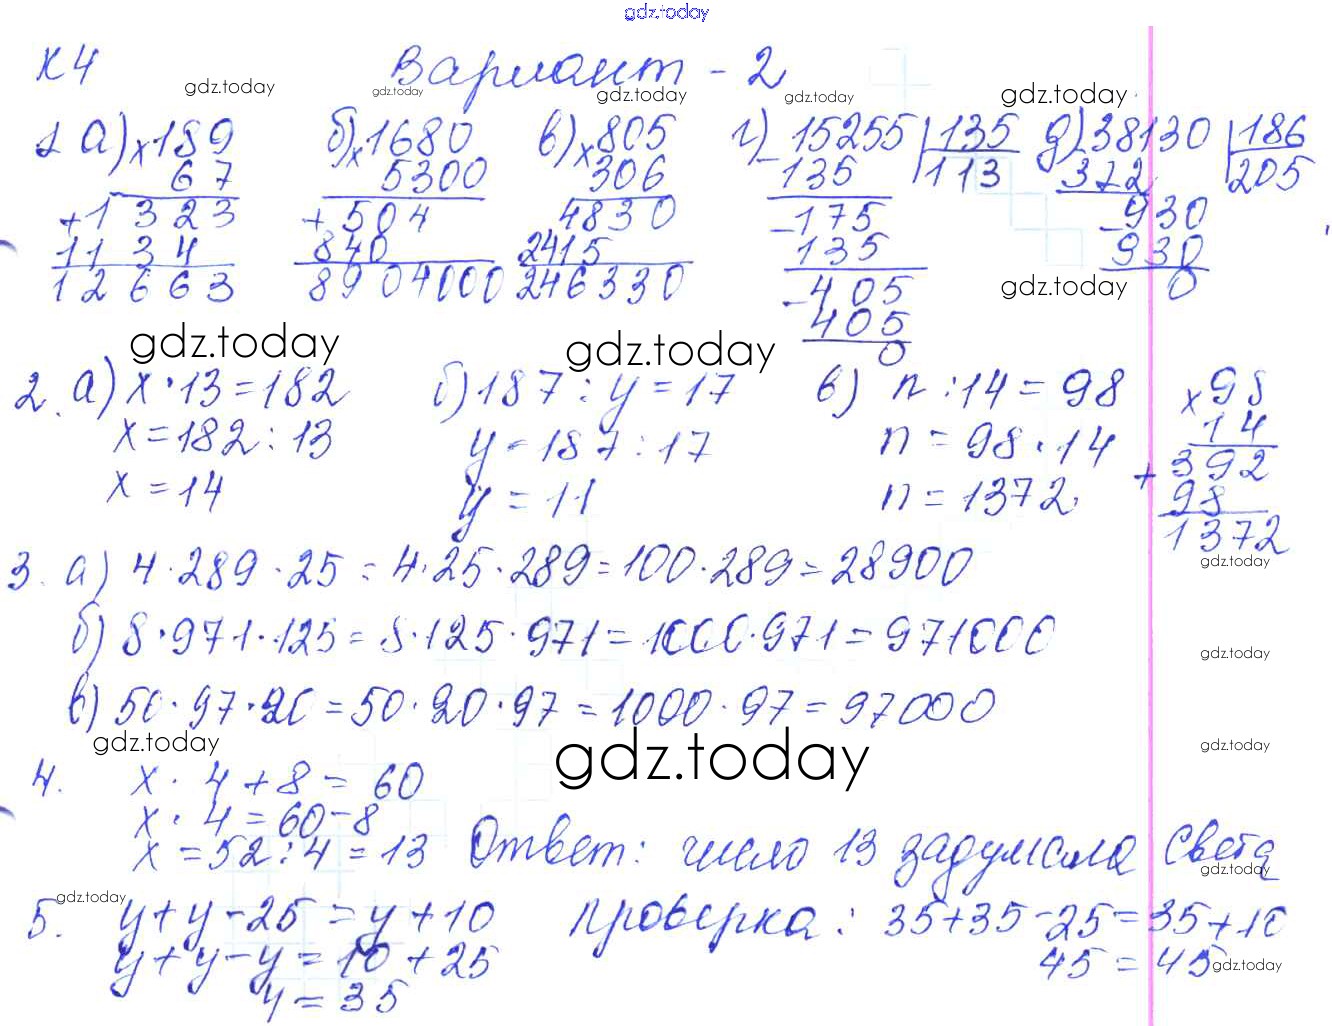 gdz.today
К 4 Вариант - 2
gdz.today gdz.today gdz.today gdz.today gdz.today
1 а) × 189 б) × 1680 в) × 805 г) - 15255 | 135 д) - 38130 | 186
67 5300 306 135 113 372 205
+ 1323 + 504 4830 - 175 - 930
1134 840 2415 135 930
12663 8904000 246330 - 405 0
gdz.today
405
0
gdz.today gdz.today
2. а) x · 13 = 182 б) 187 : y = 17 в) n : 14 = 98 × 98
x = 182 : 13 y = 187 : 17 n = 98 · 14 14
x = 14 y = 11 n = 1372, + 392
98
1372
gdz.today
3. а) 4 · 289 · 25 = 4 · 25 · 289 = 100 · 289 = 28900
б) 8 · 971 · 125 = 8 · 125 · 971 = 1000 · 971 = 971000
gdz.today
в) 50 · 97 · 20 = 50 · 20 · 97 = 1000 · 97 = 97000
gdz.today gdz.today gdz.today
4. x · 4 + 8 = 60
x · 4 = 60 - 8
x = 52 : 4 = 13 Ответ: число 13 задумала Света
gdz.today
gdz.today
5. y + y - 25 = y + 10 проверка: 35 + 35 - 25 = 35 + 10
y + y - y = 10 + 25 45 = 45
gdz.today
y = 35